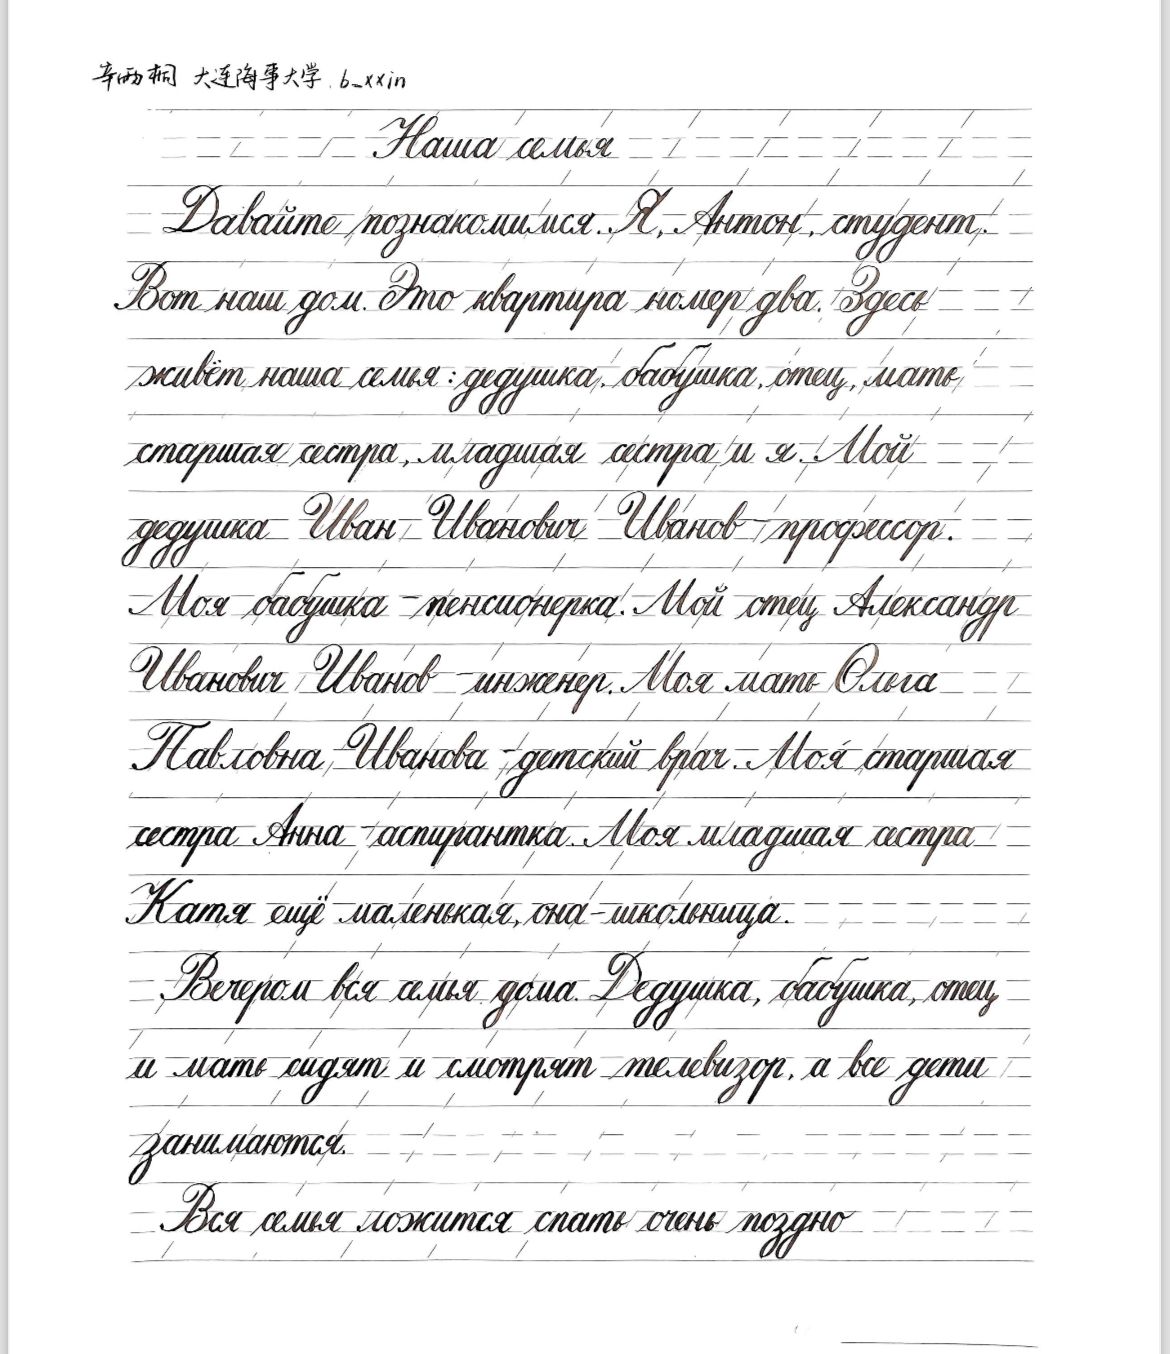 辛雨桐 大连海事大学 b_xxin
Наша семья
Давайте познакомимся. Я, Антон, студент.
Вот наш дом. Это квартира номер два. Здесь
живёт наша семья: дедушка, бабушка, отец, мать,
старшая сестра, младшая сестра и я. Мой
дедушка Иван Иванович Иванов – профессор.
Моя бабушка – пенсионерка. Мой отец Александр
Иванович Иванов – инженер. Моя мать Ольга
Павловна Иванова – детский врач. Моя старшая
сестра Анна – аспирантка. Моя младшая сестра
Катя ещё маленькая, она – школьница.
Вечером вся семья дома. Дедушка, бабушка, отец
и мать сидят и смотрят телевизор, а все дети
занимаются.
Вся семья ложится спать очень поздно